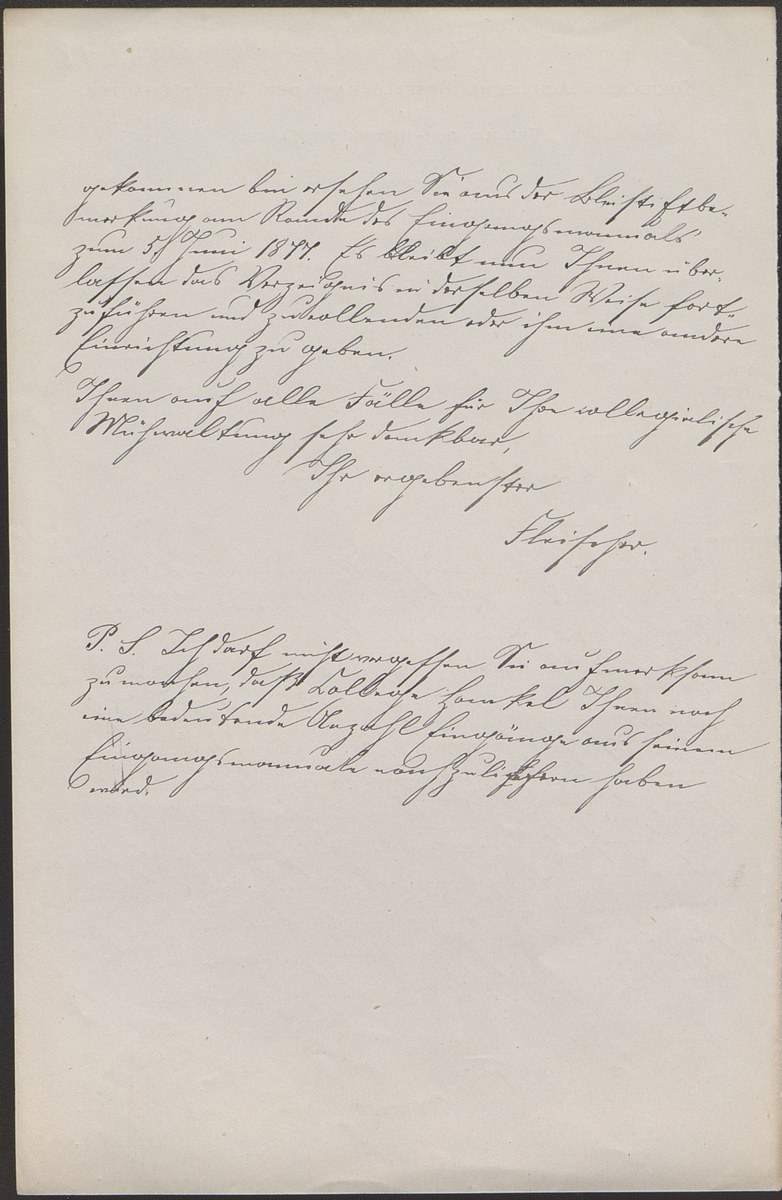 gekommen bin ersehen Sie aus der Bleistiftbe-
merkung am Rande des Eingangsmanuals
zum 5t Juni 1877. Es bleibt nun Ihnen über-
lassen das Verzeichnis in derselben Weise fort-
zuführen und zu vollenden oder ihm eine andere
Einrichtung zu geben.
Ihnen auf alle Fälle für Ihre collegialische
Mühwaltung sehr dankbar,
Ihr ergebenster
Fleischer.
P. S. Ich darf nicht vergessen Sie aufmerksam
zu machen, daß College Hankel Ihnen noch
eine bedeutende Anzahl Eingänge aus seinem
Eingangsmanuale nachzuliefern haben
wird.